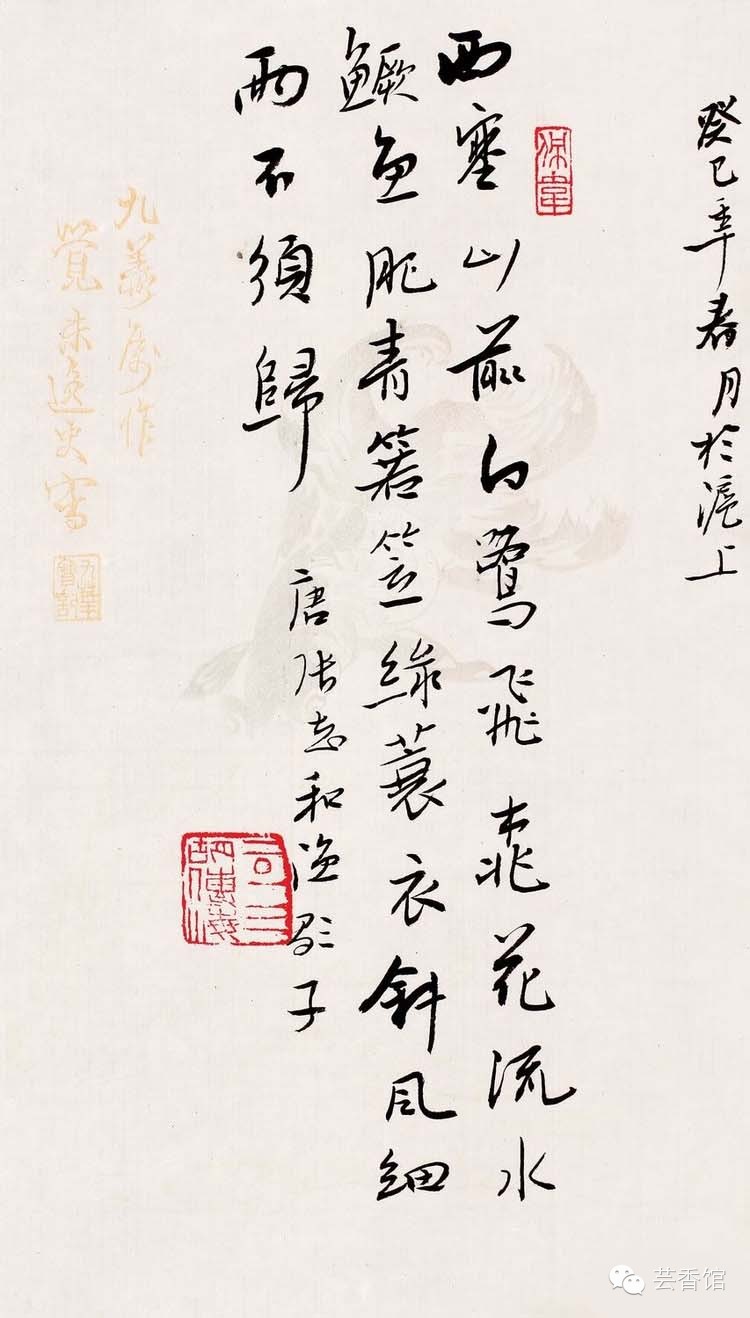 癸巳年春月於滬上
西塞山前白鷺飛桃花流水
鱖魚肥青箬笠綠蓑衣斜風細
雨不須歸
唐張志和漁歌子
九羲屬作
覺未逸史寫
芸香馆